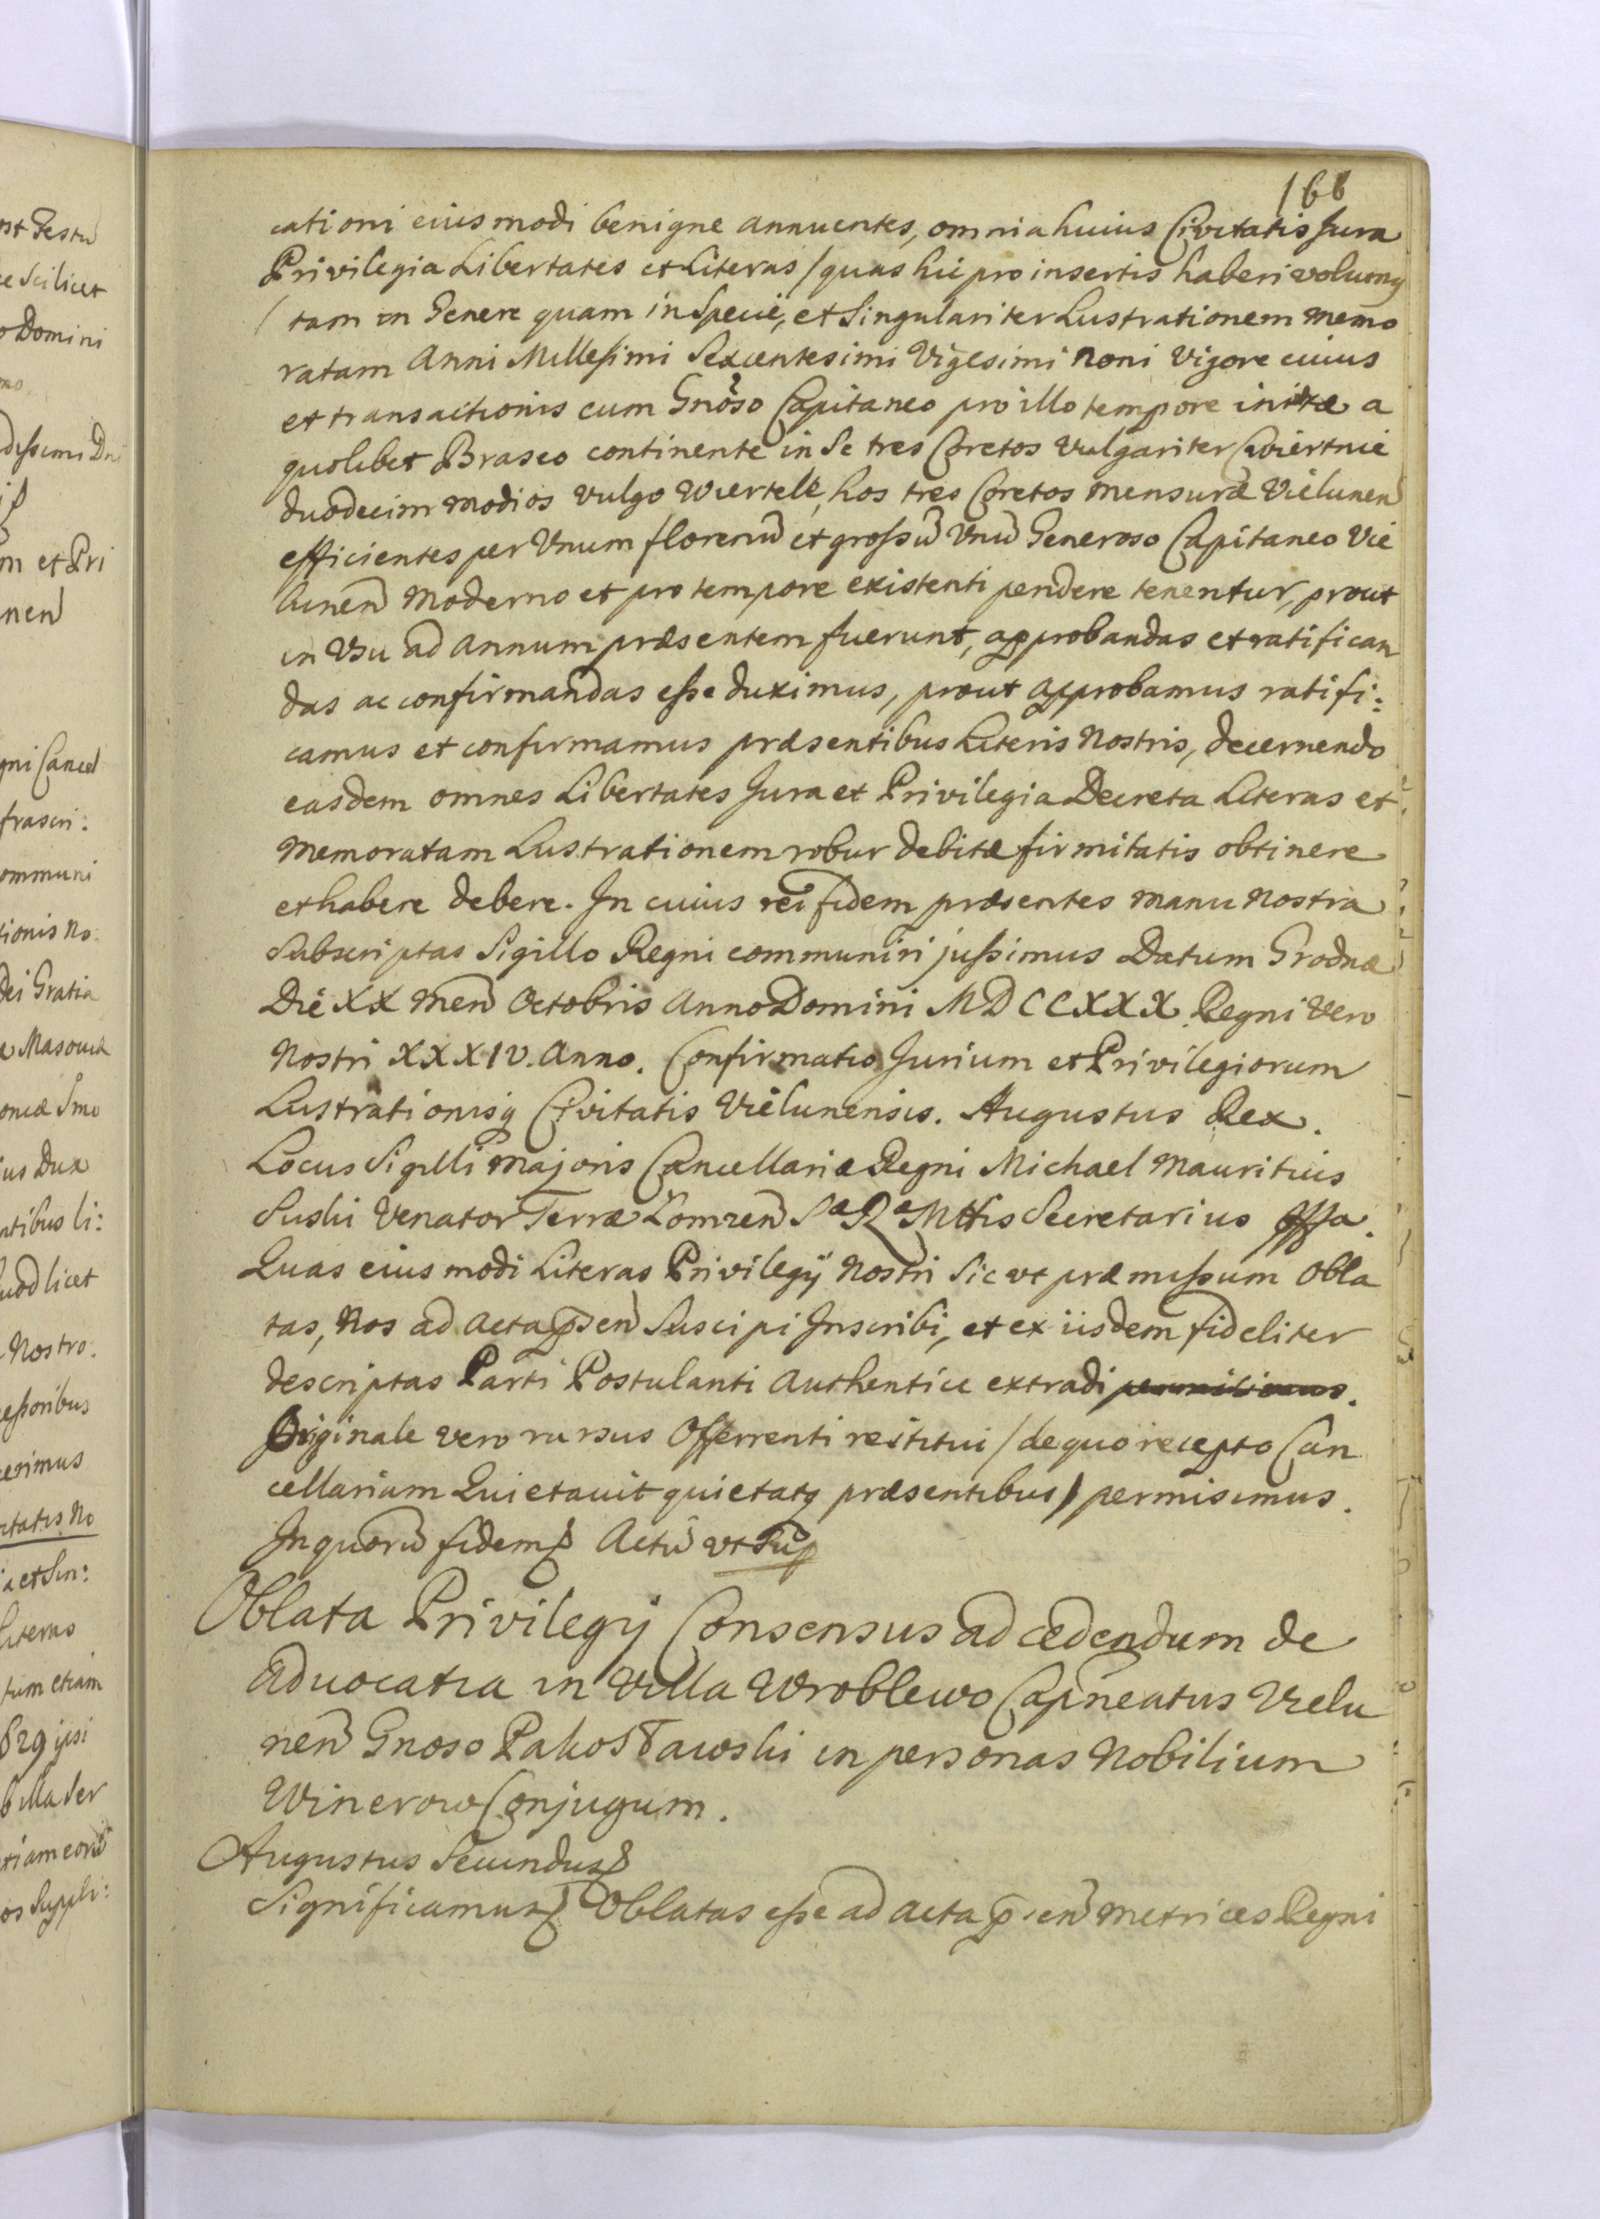 166
cationi eiusmodi benigne annuentes, omnia huius Civitatis Jura
Privilegia Libertates et Literas / quas hic pro insertis haberi volumq
/ tam in Genere quam in Specie, et Singulariter Lustrationem memo
ratam Anni Millesimi Sexcentesimi Vigesimi Noni Vigore cuius
et transactionis cum Gnoso Capitaneo pro illo tempore initæ a
quolibet Braseo continente in Se tres Coretos vulgariter Cwiertnie
duodecim modios vulgo Wiertele, hos tres Coretos mensuræ Vielunen
efficientes per Vnum florenũ et grossũ Vnũ Generoso Capitaneo Vie
lunen moderno et pro tempore existenti pendere tenentur, prout
in Vsu ad annum præsentem fuerunt, approbandas et ratifican
das ac confirmandas esse duximus, prout approbamus ratifi:
camus et confirmamus præsentibus Literis Nostris, decernendo
easdem omnes Libertates Jura et Privilegia Decreta Literas et
memoratam Lustrationem robur debitæ firmitatis obtinere
et habere debere. In cuius rei fidem præsentes manu Nostra
Subscriptas Sigillo Regni communiri jussimus Datum Grodnæ
Die XX Men Octobris Anno Domini MDCCXXX Regni Vero
Nostri XXXIV. Anno. Confirmatio Jurium et Privilegiorum
Lustrationisq Civitatis Vielunensis. Augustus Rex.
Locus Sigilli Majoris Cancellariæ Regni Michael Mauritius
Suski Venator Terræ Lomzen Sæ Ræ Mttis Secretarius
Quas eiusmodi Literas Privilegij Nostri Sic vt præmissum Obla
tas, Nos ad Acta p̃sen Suscipi Inscribi, et ex iisdem fideliter
descriptas Parti Postulanti Authentice extradi permisimus.
Originale vero rursus Offerrenti restitui / de quo recepto Can
cellariam Quietavit quietatq præsentibus / permisimus.
In quorũ fidem Actũ vt Sup
Oblata Privilegij Consensus ad cedendum de
Advocatia in Villa Wroblewo Capneatus Vielu
nen Gnoso Pakosławski in personas Nobilium
Winerow Conjugum.
Augustus Secundus
Significamus Oblatas esse ad Acta p̃sen Metrices Regni